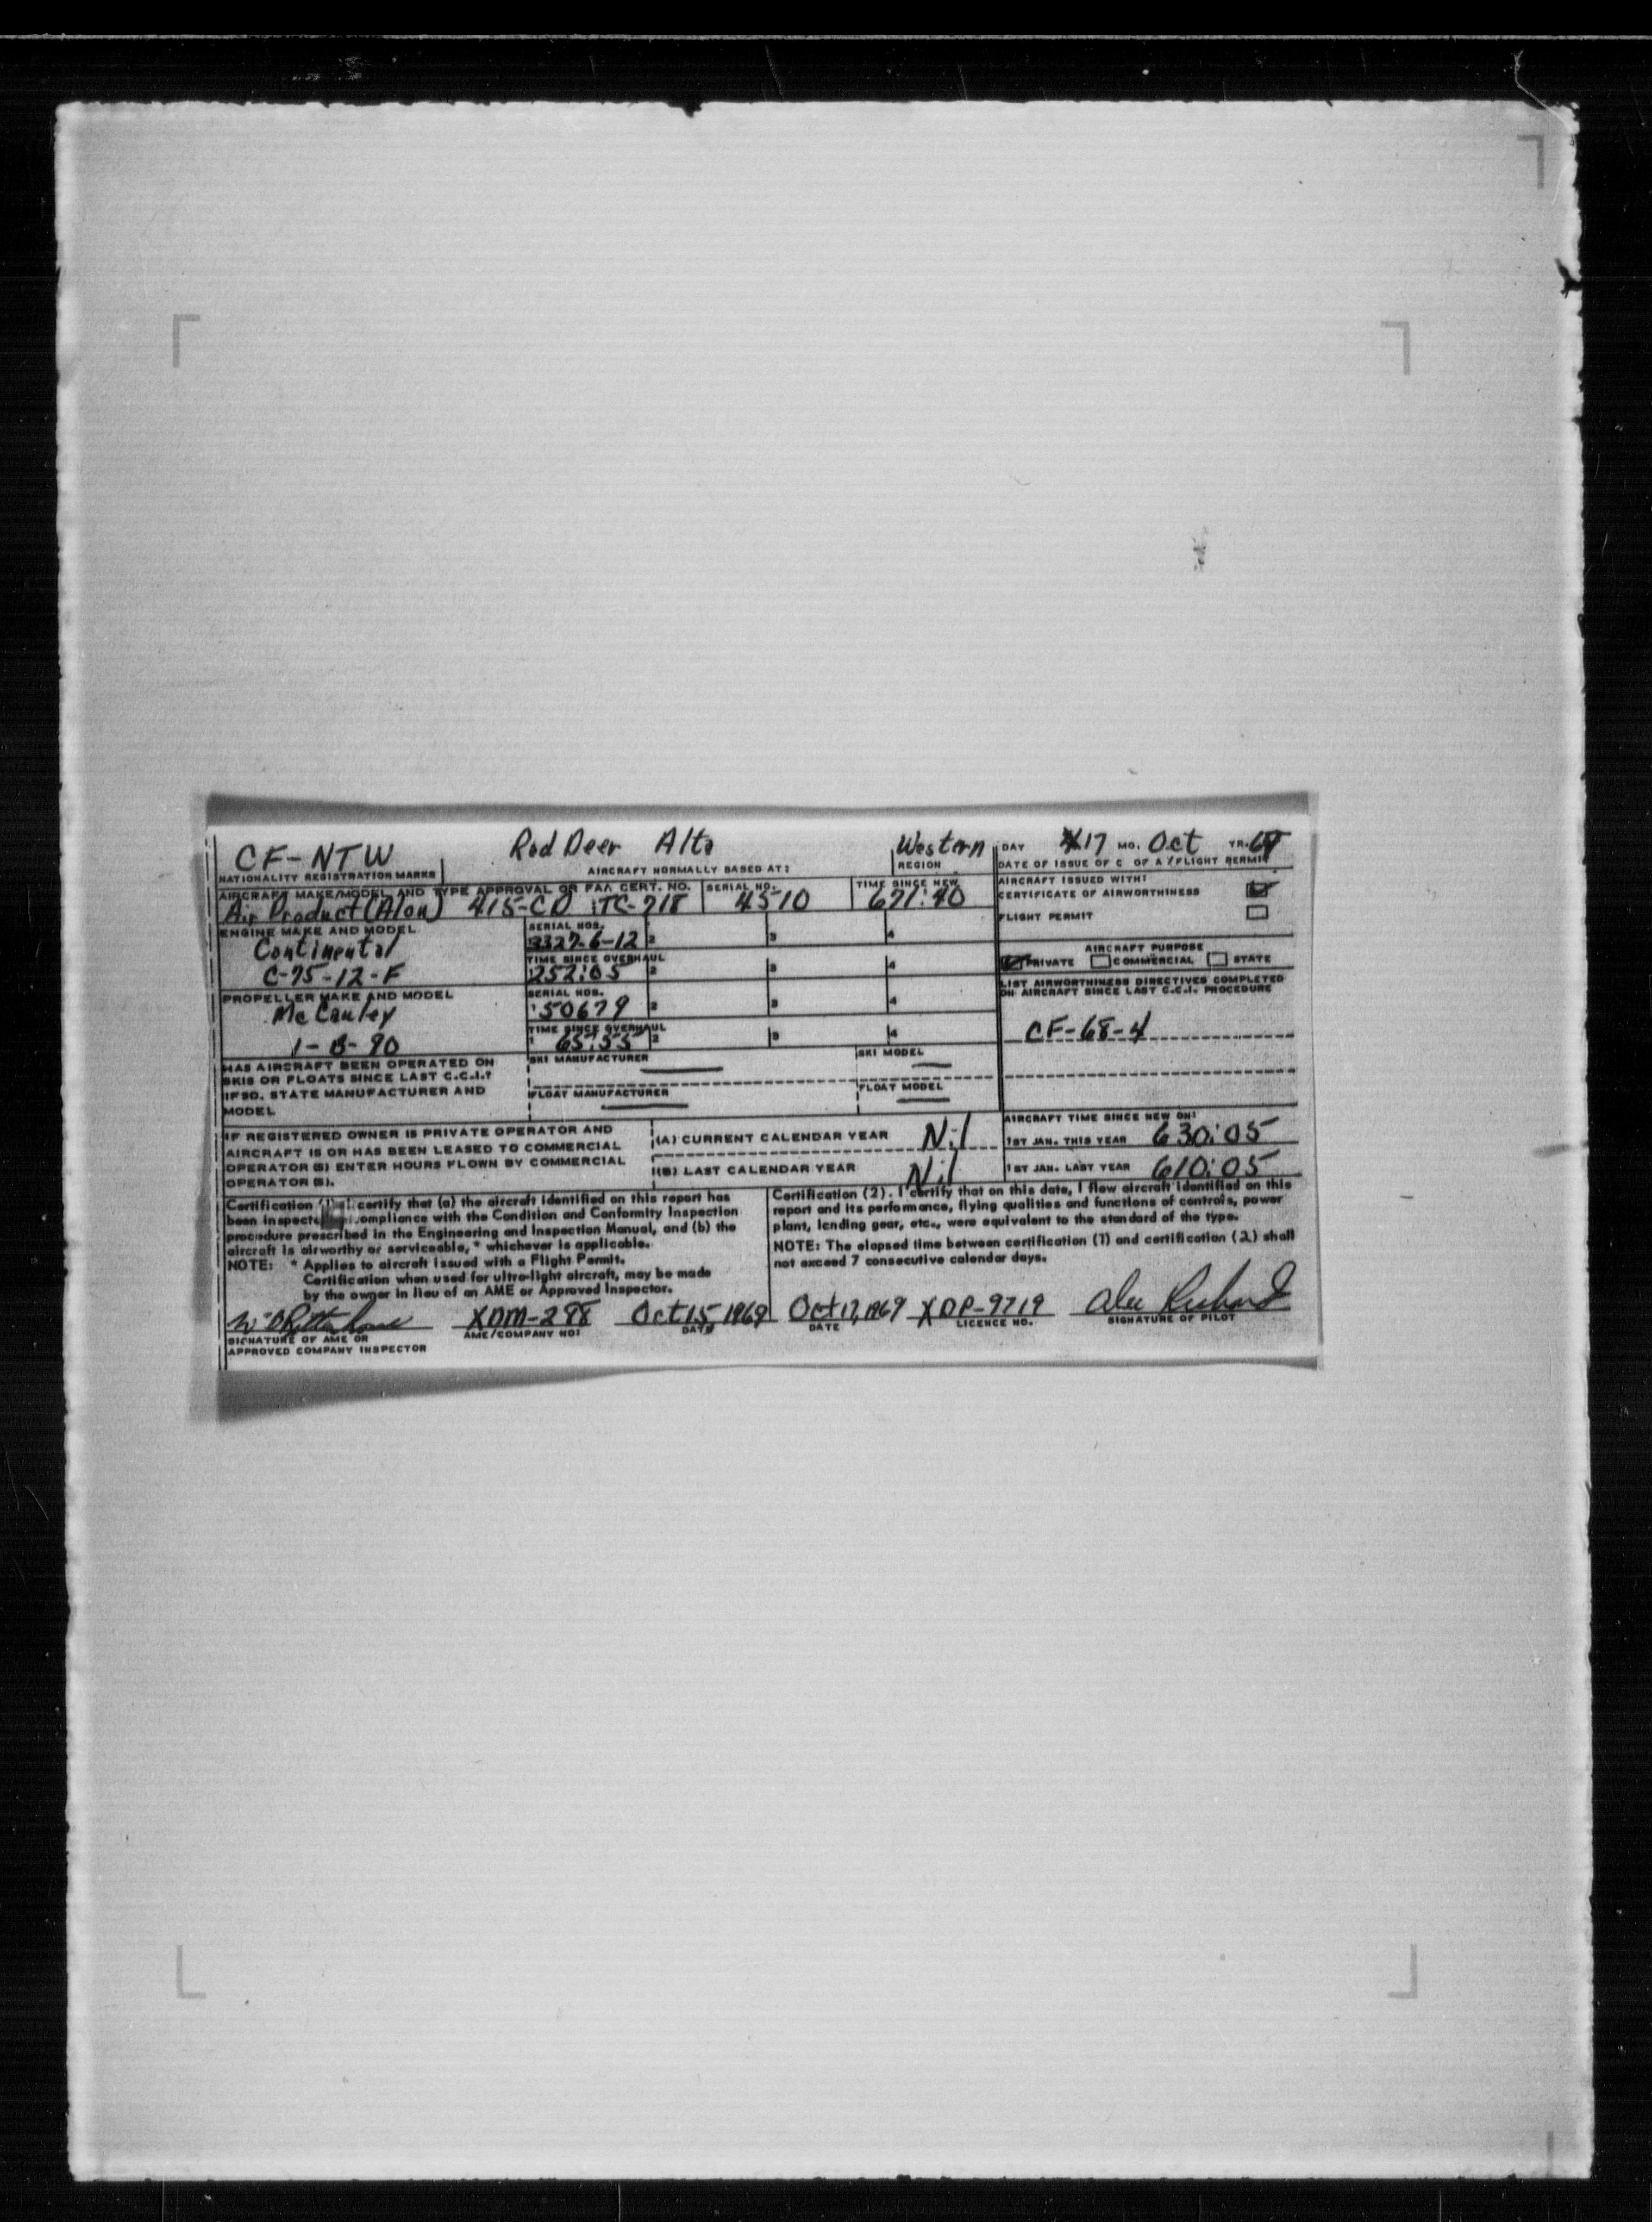 CF-NTW Red Deer Alta Western DAY 17 MO. Oct YR. 69
NATIONALITY REGISTRATION MARKS AIRCRAFT NORMALLY BASED AT: REGION DATE OF ISSUE OF C OF A/FLIGHT PERMIT
AIRCRAFT MAKE/MODEL AND TYPE APPROVAL OR FAA CERT. NO. SERIAL NO. TIME SINCE NEW AIRCRAFT ISSUED WITH:
Air Product (Alon) 415-CD TC-718 4510 671:40 CERTIFICATE OF AIRWORTHINESS
FLIGHT PERMIT
ENGINE MAKE AND MODEL SERIAL NOS.
Continental 3327-6-12 2 3 4
AIRCRAFT PURPOSE
TIME SINCE OVERHAUL
C-75-12-F 252:05 2 3 4 PRIVATE COMMERCIAL STATE
PROPELLER MAKE AND MODEL SERIAL NOS. LIST AIRWORTHINESS DIRECTIVES COMPLETED
ON AIRCRAFT SINCE LAST C.C.I. PROCEDURE
McCauley 1 50679 2 3 4
TIME SINCE OVERHAUL CF-68-4
1-B-90 1 65:55 2 3 4
HAS AIRCRAFT BEEN OPERATED ON SKI MANUFACTURER — SKI MODEL —
SKIS OR FLOATS SINCE LAST C.C.I.?
IF SO, STATE MANUFACTURER AND FLOAT MANUFACTURER — FLOAT MODEL —
MODEL
AIRCRAFT TIME SINCE NEW ON:
IF REGISTERED OWNER IS PRIVATE OPERATOR AND (A) CURRENT CALENDAR YEAR Nil 1ST JAN. THIS YEAR 630:05
AIRCRAFT IS OR HAS BEEN LEASED TO COMMERCIAL
OPERATOR (S) ENTER HOURS FLOWN BY COMMERCIAL (B) LAST CALENDAR YEAR Nil 1ST JAN. LAST YEAR 610:05
OPERATOR (S).
Certification (1) I certify that (a) the aircraft identified on this report has
been inspected compliance with the Condition and Conformity Inspection
procedure prescribed in the Engineering and Inspection Manual, and (b) the
aircraft is airworthy or serviceable, * whichever is applicable.
NOTE: * Applies to aircraft issued with a Flight Permit.
Certification when used for ultra-light aircraft, may be made
by the owner in lieu of an AME or Approved Inspector.
Certification (2). I certify that on this date, I flew aircraft identified on this
report and its performance, flying qualities and functions of controls, power
plant, landing gear, etc., were equivalent to the standard of the type.
NOTE: The elapsed time between certification (1) and certification (2) shall
not exceed 7 consecutive calendar days.
XDM-298 Oct 15, 1969 Oct 17, 1969 XDP-9719
SIGNATURE OF AME OR AME/COMPANY NO: DATE DATE LICENCE NO. SIGNATURE OF PILOT
APPROVED COMPANY INSPECTOR